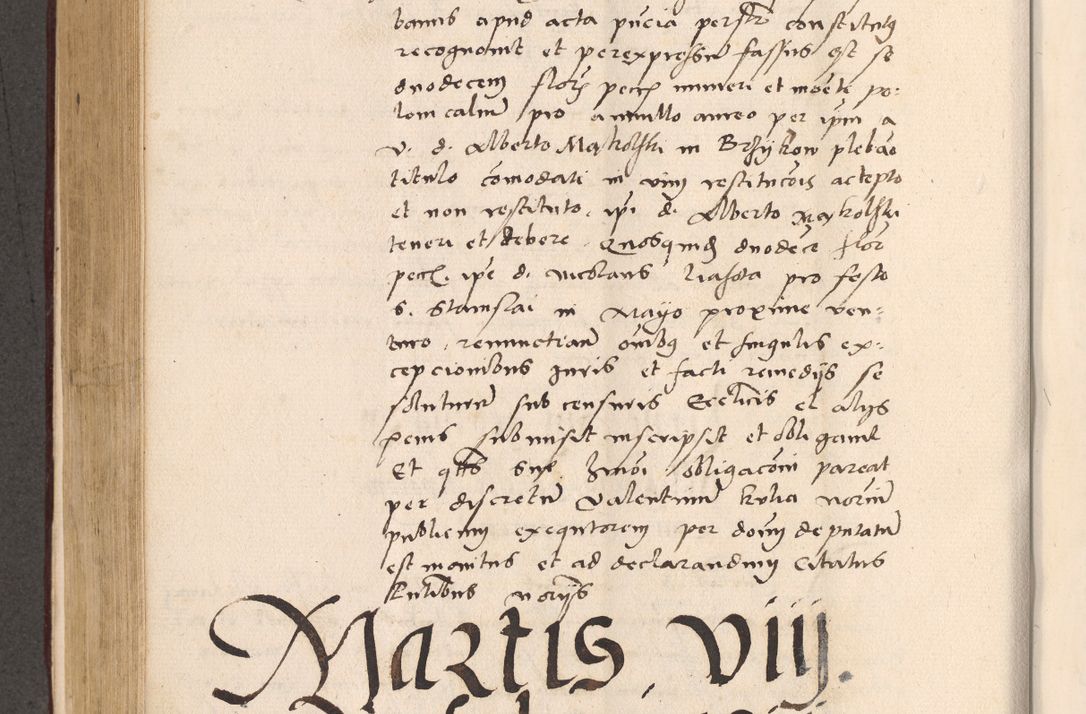 banus apud acta pncia perstr constitutus
recognovit et per expressum fassus est se
duodecem flor pecu numeri et monete po-
lonicalium pro annullo aureo per ipm a
v. d. Alberto Mąkolski in Brzykow plebao
titulo comodati in vim restitucois accepto
et non restituto, ipi d. Alberto Mąkolski
teneri et debere Quosquidem duodece flor
pecu. ipe d. Nicolaus Liassota pro festo
S. Stanislai in Mayo proxime ven-
turo, renunctians omibus et singulis ex-
cepcionibus iuris et facti remedijs se
soluturum sub censuris Ecclicis et alijs
penis submisit inscripsit et obligavit
Et qtus sup hmoi obligaconi pareat
per discretum Valentinum notrium
publicum exequutorem per dominum deputatum
est monitus et ad declarandum citatus
notrijs
Martis viij.